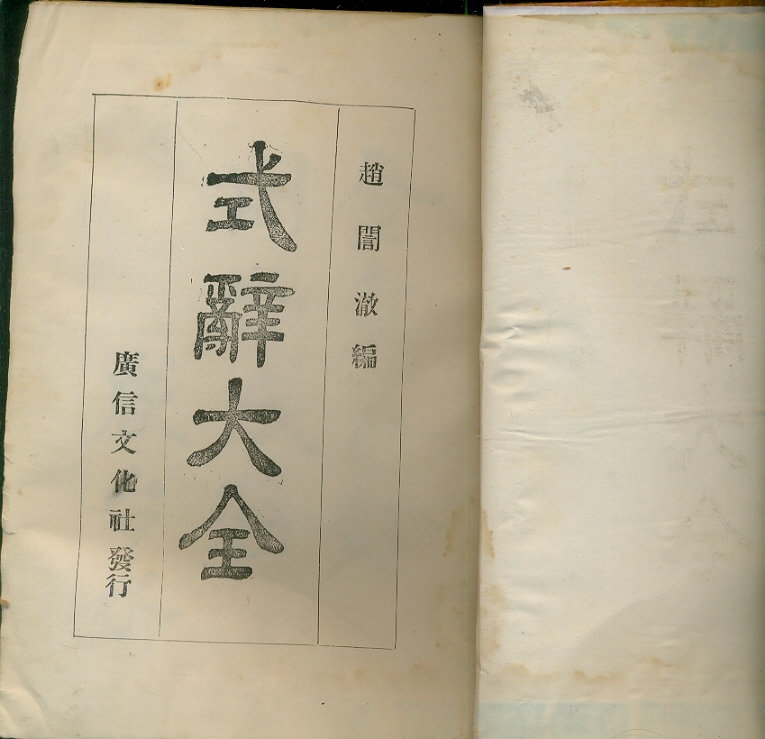 趙誾澈編
式辭大全
廣信文化社發行